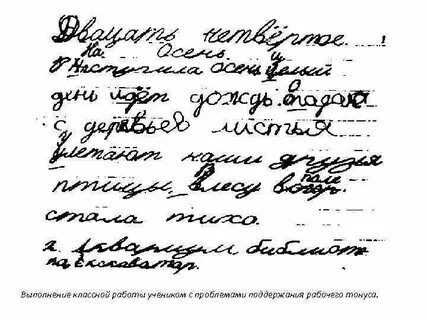 Двацать четвёртое.
Осень
Наступила осень целый
день идёт дождь опадают
с деревьев листья
улетают наши друзья
птицы, в лесу в
стала тихо.
аквариум библиот
Выполнение классной работы учеником с проблемами поддержания рабочего тонуса.